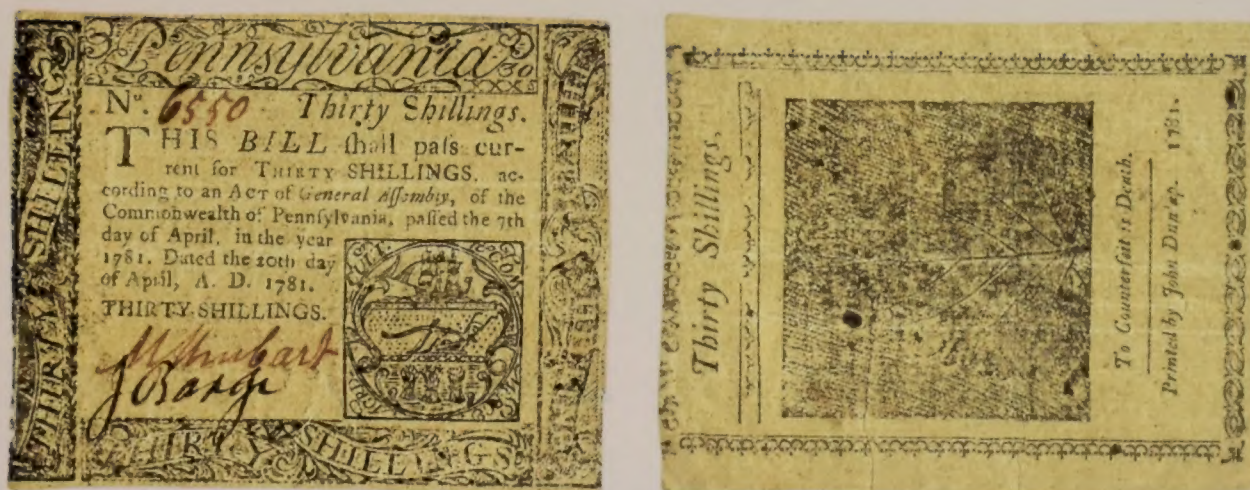 Pennsylvania
No. 6550 Thirty Shillings.
THIS BILL ſhall paſs cur-
rent for THIRTY SHILLINGS, ac-
cording to an ACT of General Aſſembly, of the
Commonwealth of Pennſylvania, paſſed the 7th
day of April, in the year
1781. Dated the 20th day
of April, A. D. 1781.
THIRTY SHILLINGS.
J Barge
THIRTY SHILLINGS
THIRTY SHILLINGS
Thirty Shillings.
To Counterfeit is Death.
Printed by John Dunlap. 1781.